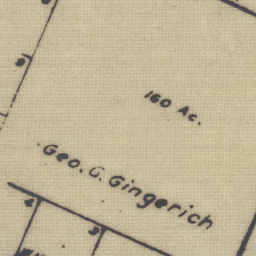 160 Ac.
Geo. G. Gingerich